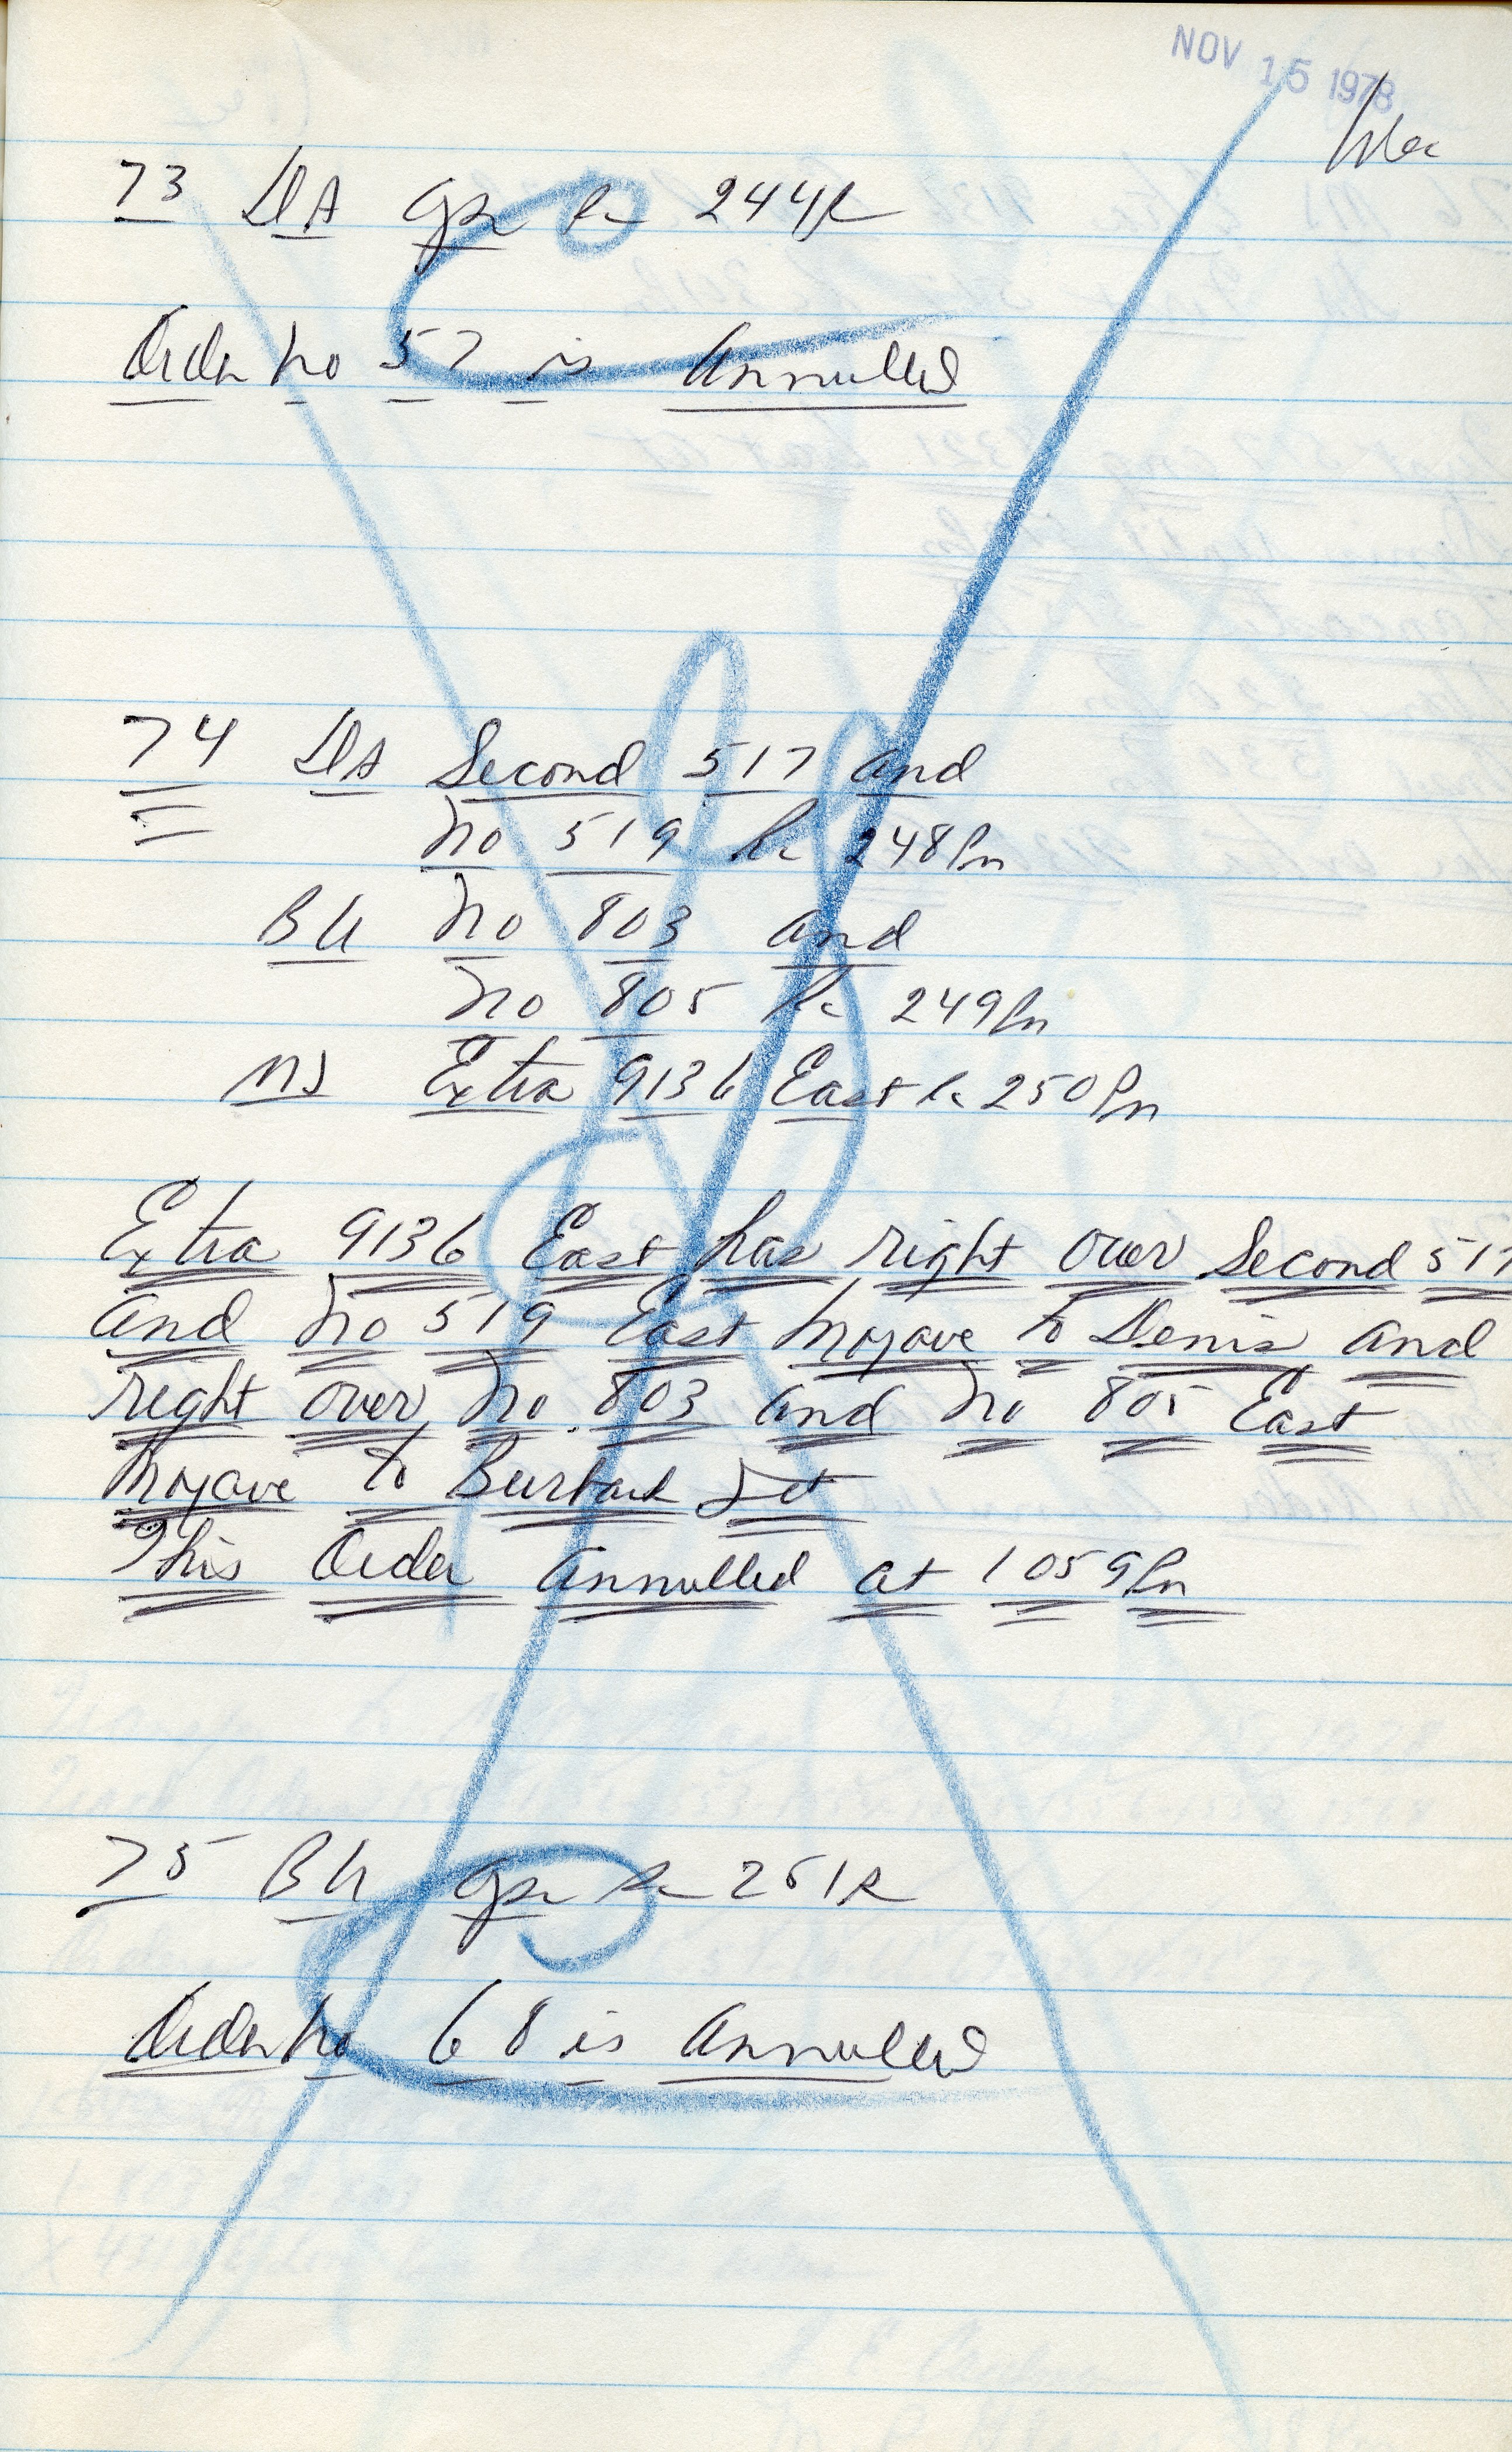 NOV 15 1978
73 DA Opr 244P
Order No 57 is Annulled
74 DA Second 517 and
No 519 248Pm
BU No 803 and
No 805 249Pm
MJ Extra 9136 East 250Pm
Extra 9136 East has right over Second 517
and No 519 East Mojave to Denis and
right over No 803 and No 805 East
Mojave to Burbank Jct
This Order annulled at 1059Pm
75 BU Opr 251P
Order No 68 is Annulled